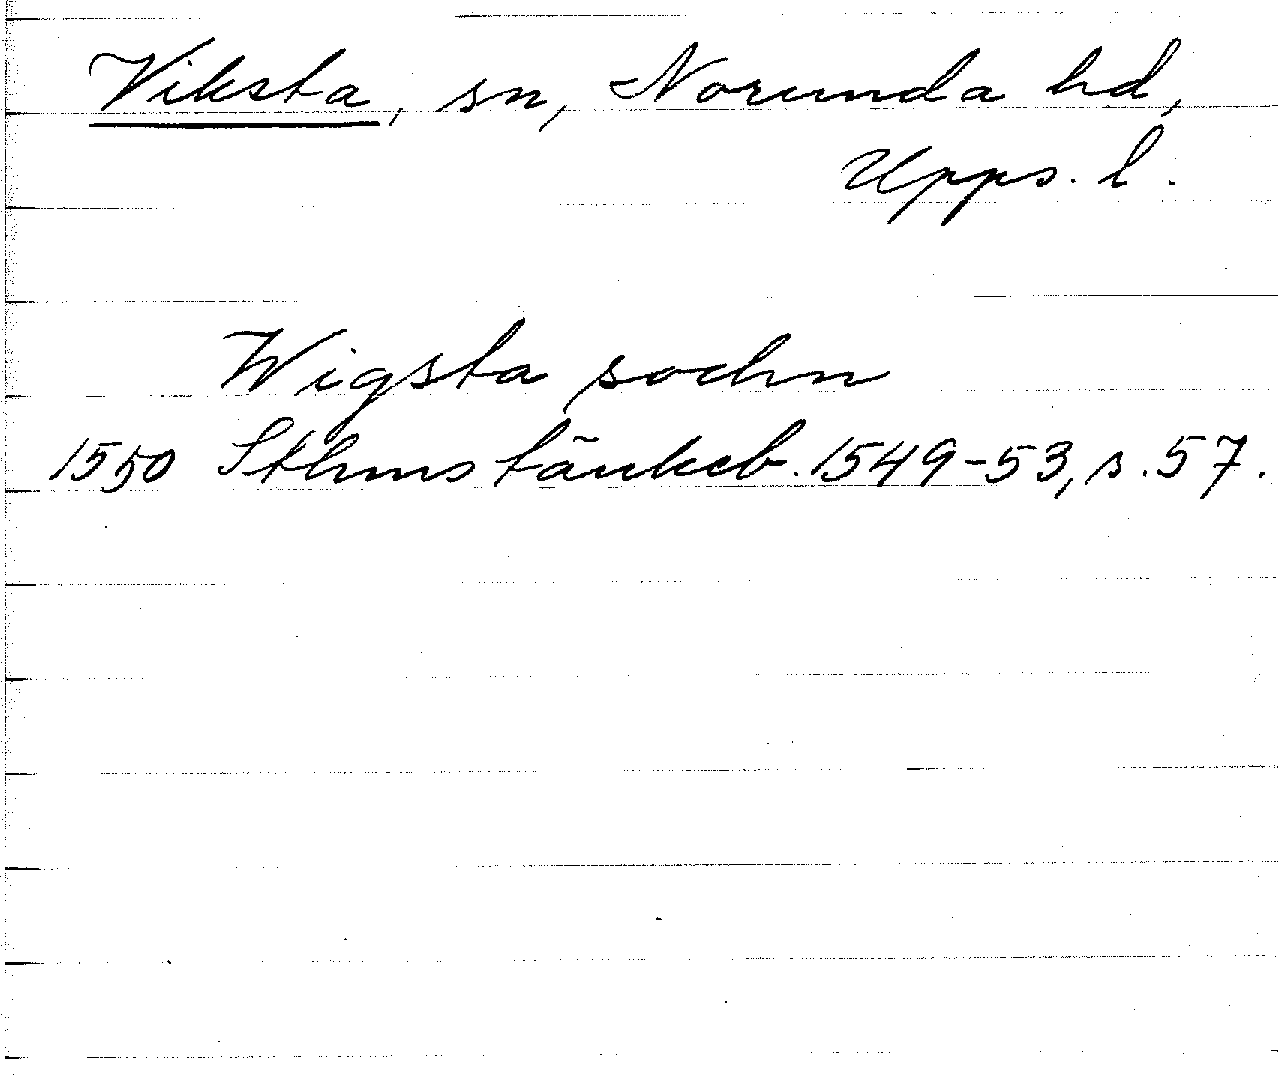 Viksta, sn, Norunda hd,
Upps. l.
Wigsta sochn
1550 Sthms tänkeb. 1549-53, s. 57.